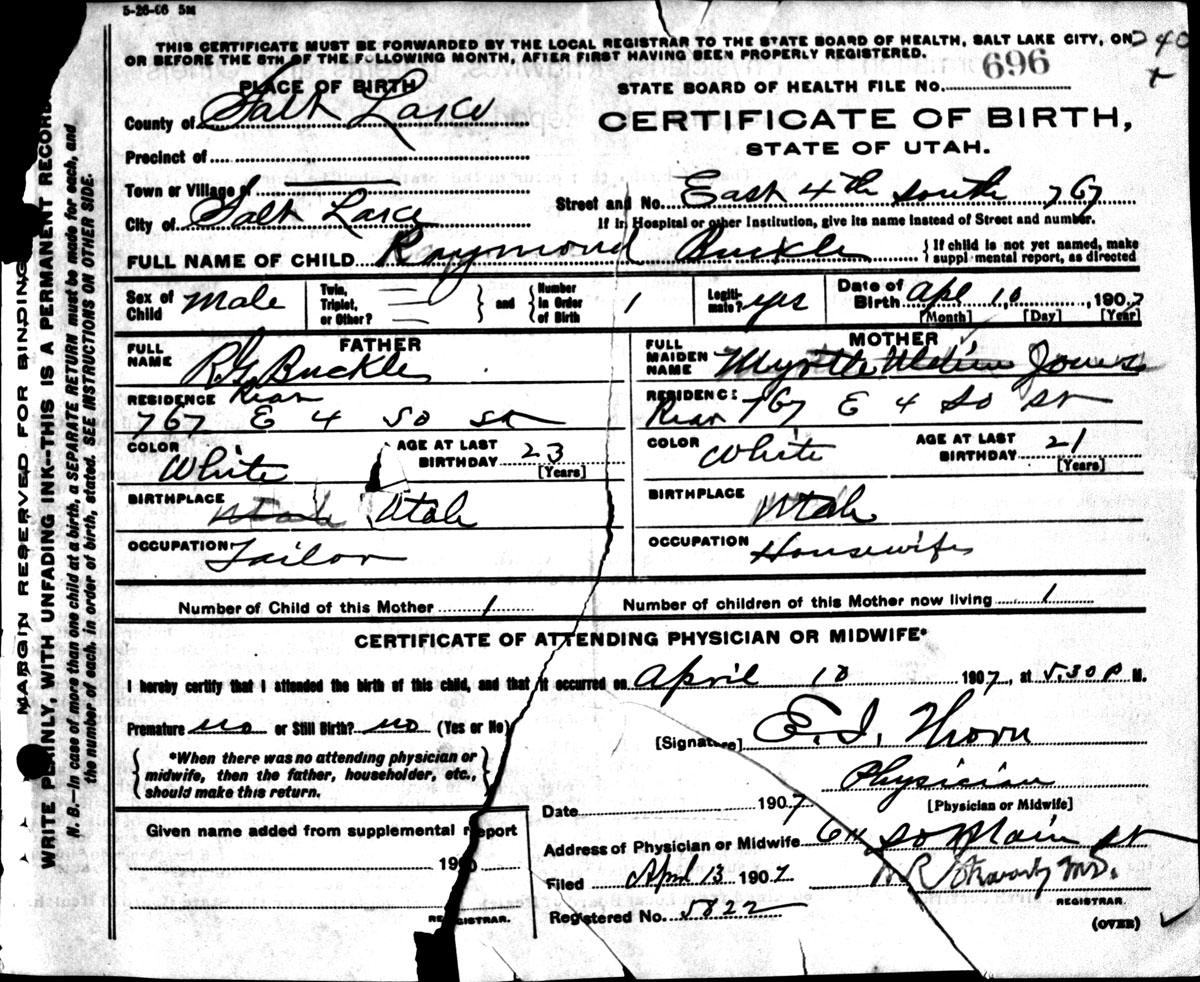 5-26-06 5M
THIS CERTIFICATE MUST BE FORWARDED BY THE LOCAL REGISTRAR TO THE STATE BOARD OF HEALTH, SALT LAKE CITY, ON
OR BEFORE THE 5TH OF THE FOLLOWING MONTH, AFTER FIRST HAVING BEEN PROPERLY REGISTERED.
240
PLACE OF BIRTH
STATE BOARD OF HEALTH FILE NO. 696
County of Salt Lake
CERTIFICATE OF BIRTH,
STATE OF UTAH.
Precinct of
Town or Village of
City of Salt Lake
Street and No. East 4th South 767
If in Hospital or other Institution, give its name instead of Street and number.
FULL NAME OF CHILD Raymond Buckle
If child is not yet named, make
supplemental report, as directed
Sex of Child Male
Twin, Triplet, or Other?
and
Number in Order of Birth 1
Legitimate? yes
Date of Birth Apl 10, 1907
[Month] [Day] [Year]
FATHER
FULL NAME R G Buckle
RESIDENCE Rear
767 E 4 So St
COLOR White
AGE AT LAST BIRTHDAY 23
[Years]
BIRTHPLACE Utah Utah
OCCUPATION Tailor
MOTHER
FULL MAIDEN NAME Myrtle Jones
RESIDENCE
Rear 767 E 4 So St
COLOR White
AGE AT LAST BIRTHDAY 21
[Years]
BIRTHPLACE Utah
OCCUPATION Housewife
Number of Child of this Mother 1
Number of children of this Mother now living 1
CERTIFICATE OF ATTENDING PHYSICIAN OR MIDWIFE*
I hereby certify that I attended the birth of this child, and that it occurred on April 10 1907, at 5.30 P M.
Premature no or Still Birth? no (Yes or No)
*When there was no attending physician or
midwife, then the father, householder, etc.,
should make this return.
[Signature] E. I. Thorn
Physician
[Physician or Midwife]
Date 1907
Address of Physician or Midwife So Main St
Given name added from supplemental report
190
REGISTRAR.
Filed April 13 1907
M.D.
REGISTRAR.
Registered No. 5822
(OVER)
MARGIN RESERVED FOR BINDING
WRITE PLAINLY, WITH UNFADING INK--THIS IS A PERMANENT RECORD.
N. B.--In case of more than one child at a birth, a SEPARATE RETURN must be made for each, and
the number of each, in order of birth, stated. SEE INSTRUCTIONS ON OTHER SIDE.